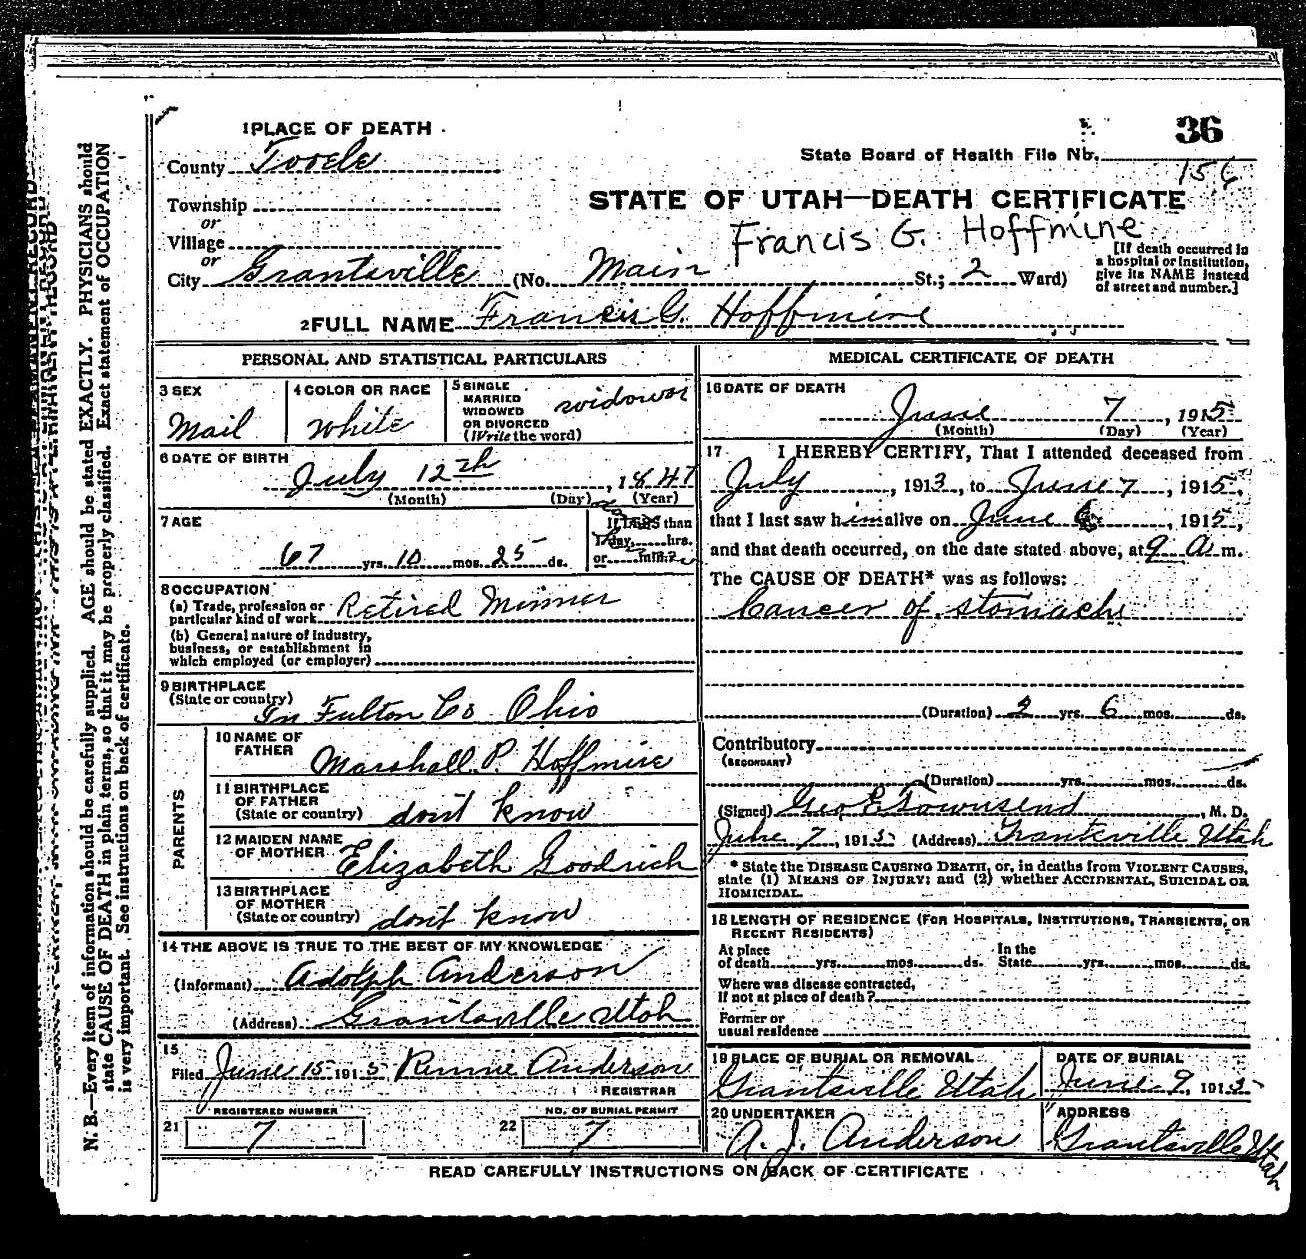 1 PLACE OF DEATH
36
County Tooele
State Board of Health File No. 156
Township
STATE OF UTAH—DEATH CERTIFICATE
or
Village
Francis G. Hoffmire
or
City Grantsville (No. Main St.; 2 Ward)
[If death occurred in
a hospital or institution,
give its NAME instead
of street and number.]
2 FULL NAME Francis G. Hoffmire
PERSONAL AND STATISTICAL PARTICULARS
3 SEX
Mail
4 COLOR OR RACE
white
5 SINGLE
MARRIED
WIDOWED
OR DIVORCED
(Write the word)
widower
6 DATE OF BIRTH
July 12th, 1847
(Month) (Day) (Year)
7 AGE
67 yrs. 10 mos. 25 ds.
If LESS than
1 day, hrs.
or min.?
8 OCCUPATION
(a) Trade, profession or
particular kind of work Retired Minner
(b) General nature of industry,
business, or establishment in
which employed (or employer)
9 BIRTHPLACE
(State or country)
In Fulton Co Ohio
PARENTS
10 NAME OF
FATHER
Marshall P. Hoffmire
11 BIRTHPLACE
OF FATHER
(State or country) don't know
12 MAIDEN NAME
OF MOTHER Elizabeth Goodrich
13 BIRTHPLACE
OF MOTHER
(State or country) don't know
14 THE ABOVE IS TRUE TO THE BEST OF MY KNOWLEDGE
(Informant) Adolph Anderson
(Address) Grantsville Utah
15
Filed June 15 1915 Anderson
REGISTRAR
REGISTERED NUMBER
21 7
NO. OF BURIAL PERMIT
22 7
MEDICAL CERTIFICATE OF DEATH
16 DATE OF DEATH
June 7, 1915
(Month) (Day) (Year)
17 I HEREBY CERTIFY, That I attended deceased from
July, 1913, to June 7, 1915,
that I last saw him alive on June 6, 1915,
and that death occurred, on the date stated above, at 9 a m.
The CAUSE OF DEATH* was as follows:
Cancer of stomach
(Duration) 2 yrs. 6 mos. ds.
Contributory
(SECONDARY)
(Duration) yrs. mos. ds.
(Signed) Geo E Townsend, M. D.
June 7, 1915 (Address) Grantsville Utah
* State the DISEASE CAUSING DEATH, or, in deaths from VIOLENT CAUSES,
state (1) MEANS OF INJURY; and (2) whether ACCIDENTAL, SUICIDAL OR
HOMICIDAL.
18 LENGTH OF RESIDENCE (FOR HOSPITALS, INSTITUTIONS, TRANSIENTS, OR
RECENT RESIDENTS)
At place
of death yrs. mos. ds.
In the
State yrs. mos. ds.
Where was disease contracted,
If not at place of death?
Former or
usual residence
19 PLACE OF BURIAL OR REMOVAL
Grantsville Utah
DATE OF BURIAL
June 9, 1915
20 UNDERTAKER
A. J. Anderson
ADDRESS
Grantsville Utah
READ CAREFULLY INSTRUCTIONS ON BACK OF CERTIFICATE
N. B.—Every item of information should be carefully supplied. AGE should be stated EXACTLY. PHYSICIANS should
state CAUSE OF DEATH in plain terms, so that it may be properly classified. Exact statement of OCCUPATION
is very important. See instructions on back of certificate.